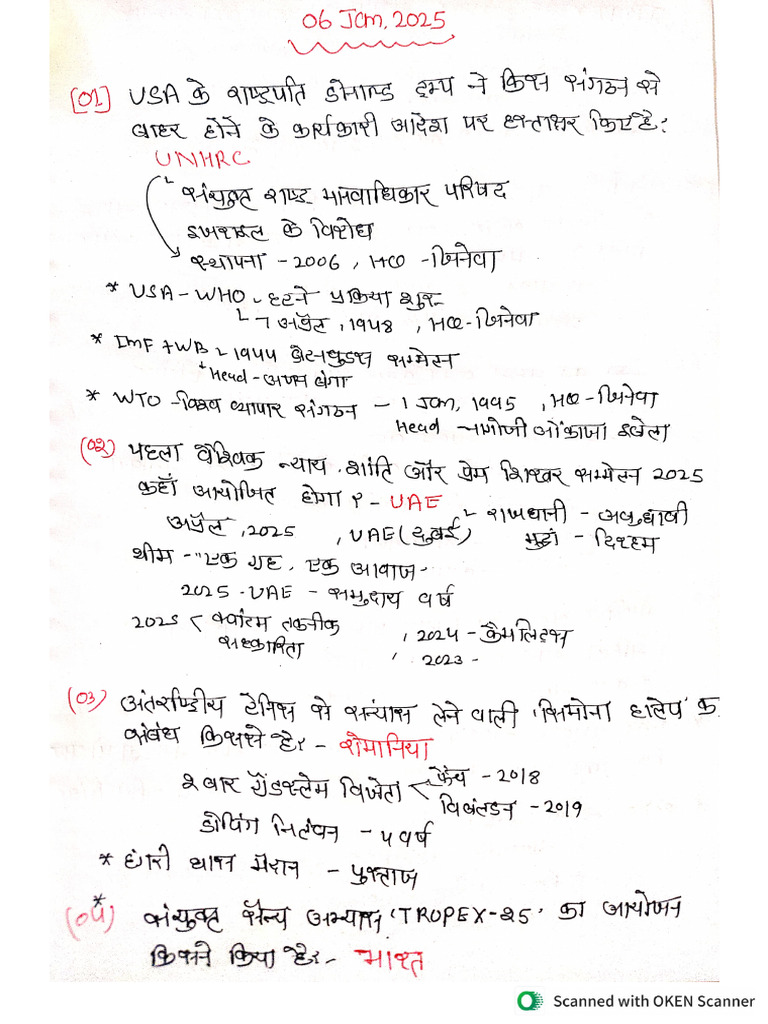 06 Jan, 2025
[01] USA के राष्ट्रपति डोनाल्ड ट्रम्प ने किस संगठन से
बाहर होने के कार्यकारी आदेश पर हस्ताक्षर किए है:
UNHRC
संयुक्त राष्ट्र मानवाधिकार परिषद
इजराइल के विरोध
स्थापना - 2006, HQ - जिनेवा
* USA - WHO - हटने प्रक्रिया शुरू
7 अप्रैल, 1948, HQ - जिनेवा
* IMF + WB - 1944 ब्रेटनवुड्स सम्मेलन
Head - अजय बंगा
* WTO - विश्व व्यापार संगठन - 1 Jan, 1995, HQ - जिनेवा
Head - नगोजी ओकोंजा इवेला
(02) पहला वैश्विक न्याय, शांति और प्रेम शिखर सम्मेलन 2025
कहाँ आयोजित होगा ? - UAE
राजधानी - अबुधाबी
अप्रैल, 2025, UAE (दुबई) मुद्रा - दिरहम
थीम - "एक ग्रह, एक आवाज -
2025 - UAE - समुदाय वर्ष
2025 क्वांटम तकनीक, 2024 - कैमलिड्स
सहकारिता, 2023 -
(03) अंतर्राष्ट्रीय टेनिस से सन्यास लेने वाली 'सिमोना हालेप' क
संबंध किससे है: - रोमानिया
2 बार ग्रैंडस्लेम विजेता फ्रेंच - 2018
विंबलडन - 2019
डोपिंग निलंबन - 4 वर्ष
* हंगरी पुस्तान
(04) * संयुक्त सैन्य अभ्यास 'TROPEX-25' का आयोजन
किसने किया है: - भारत
Scanned with OKEN Scanner